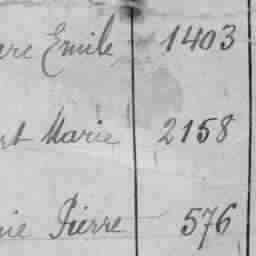 Emile 1403
Marie 2158
Pierre 576